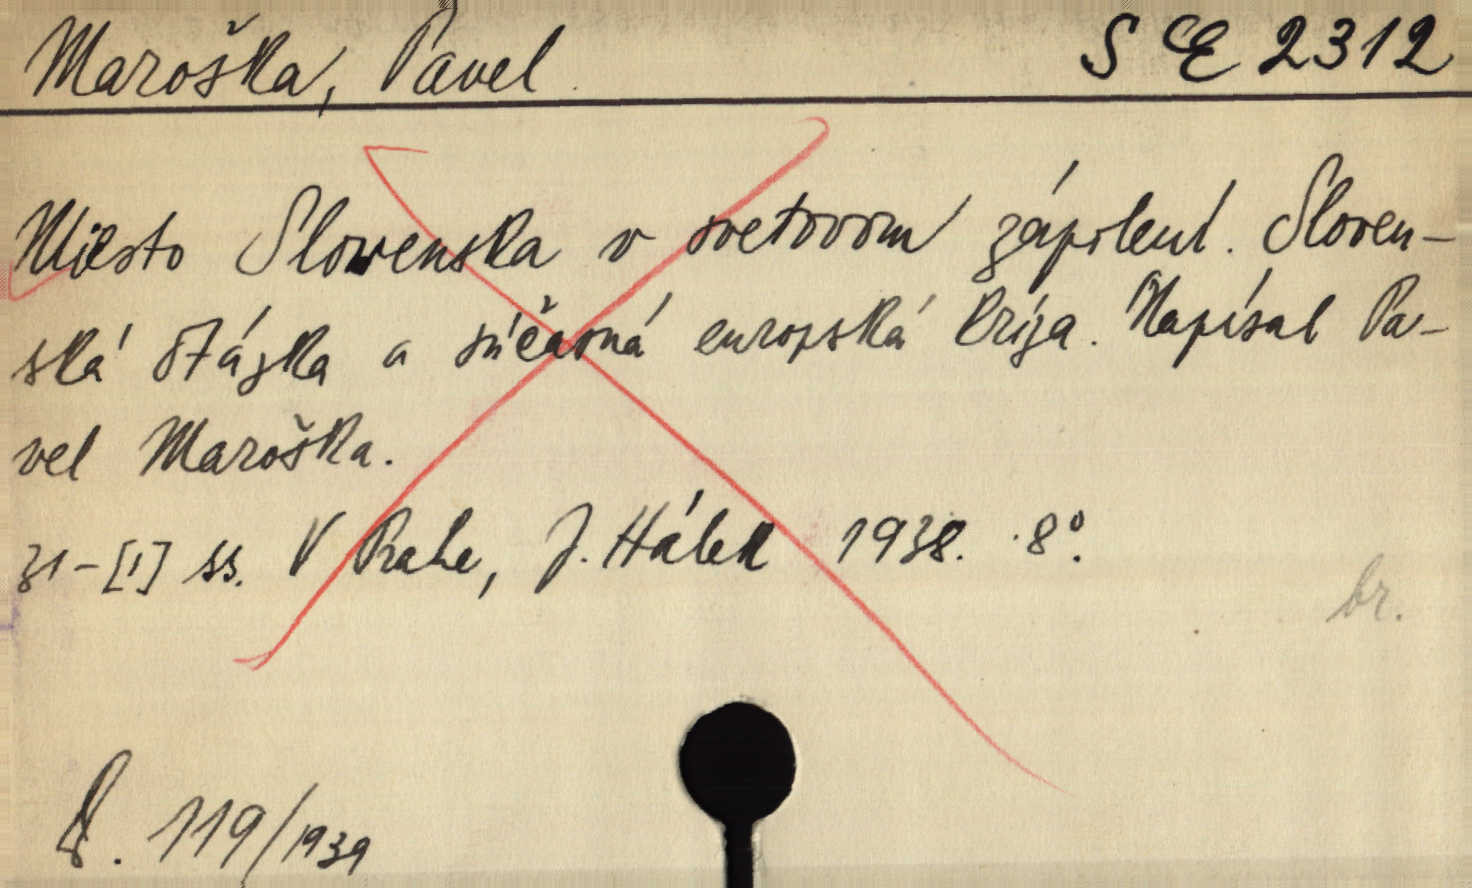 Maroška, Pavel. S E 2312
Miesto Slovenska v svetovom zápolení. Sloven-
ská otázka a súčasná europská kríza. Napísal Pa-
vel Maroška.
31-[1] ss. V Prahe, J. Hálek 1938. 8°.
br.
119/1939